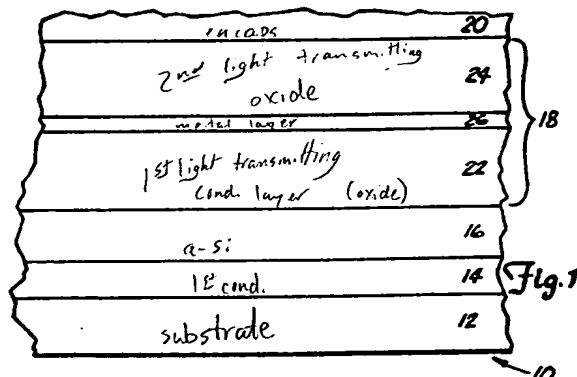 encaps 20
2nd light transmitting
oxide 24
metal layer 26
18
1st light transmitting
cond. layer (oxide) 22
a-si 16
1st cond. 14
Fig. 1
substrate 12
10